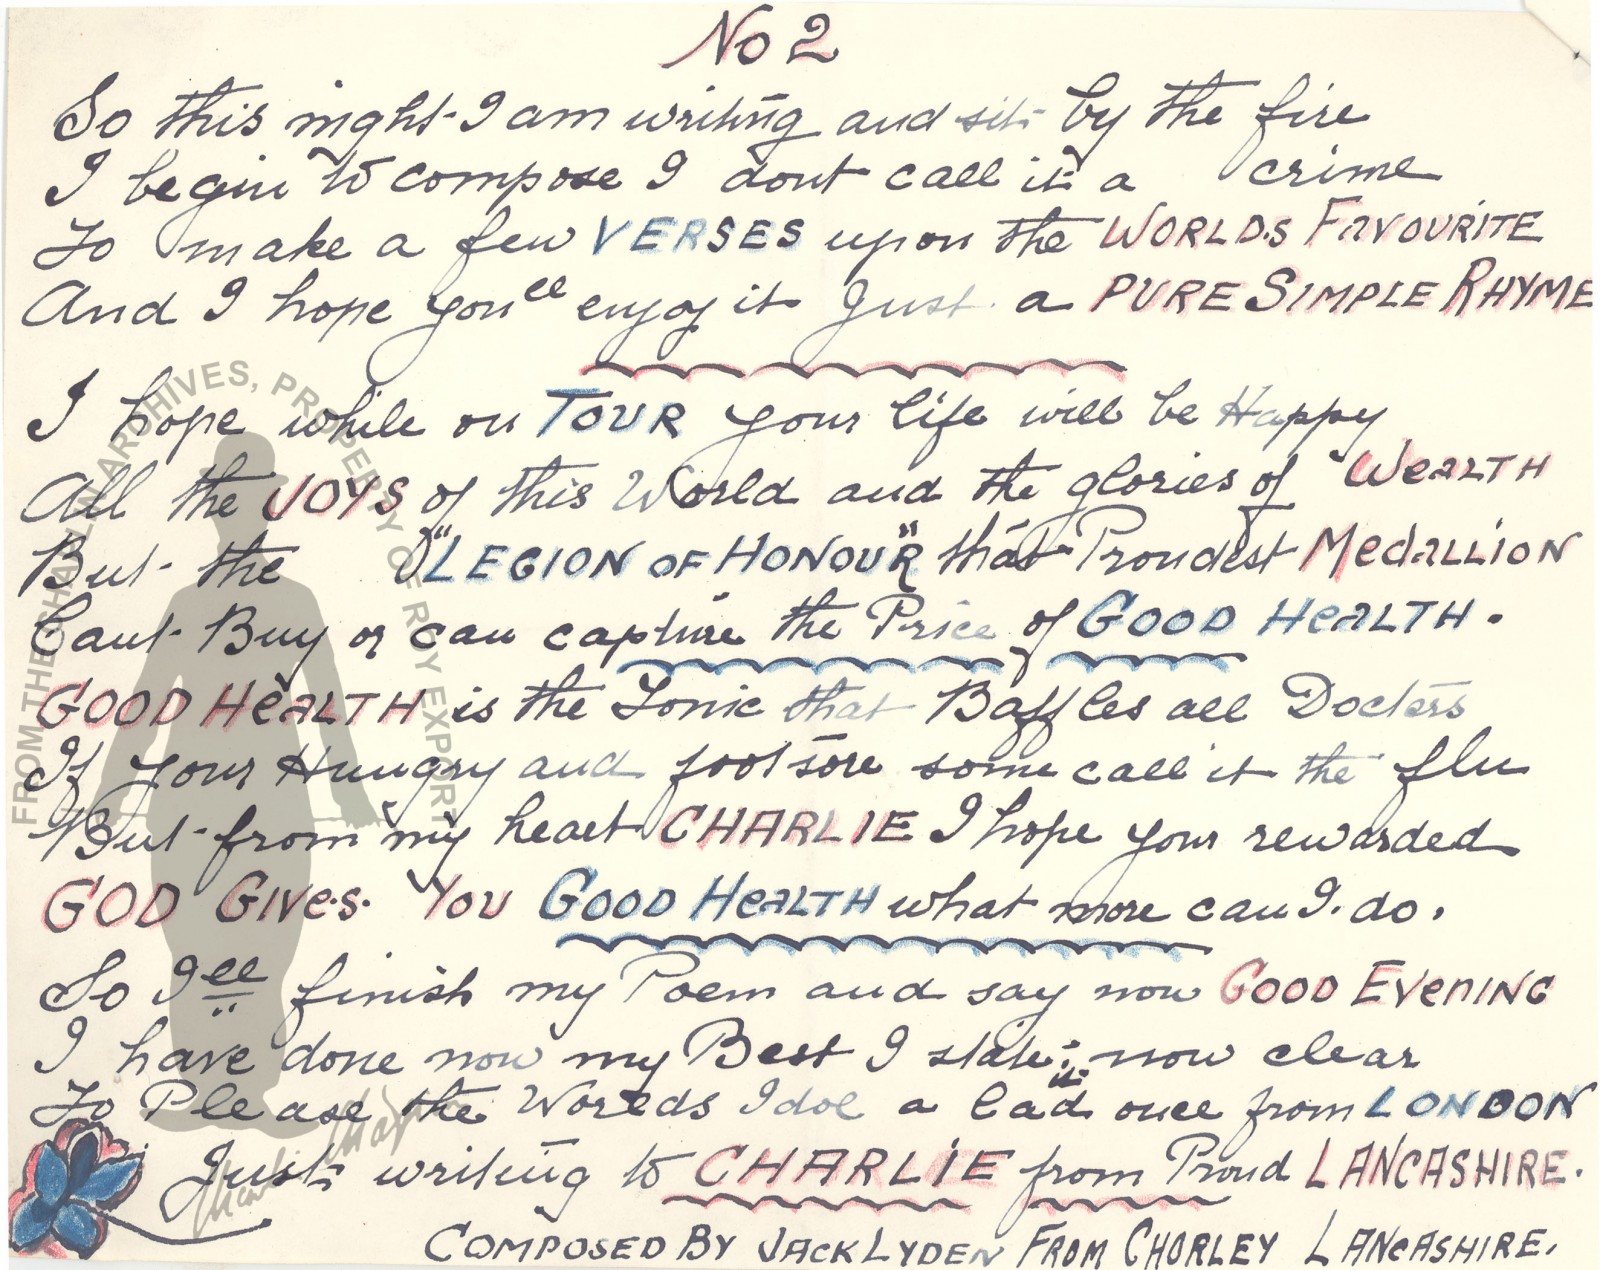 No 2
So this night I am writing and sit by the fire
I begin to compose I dont call it a crime
To make a few VERSES upon the WORLDS FAVOURITE
And I hope you'll enjoy it Just a PURE SIMPLE RHYME
I hope while on TOUR your life will be Happy
All the JOYS of this World and the glories of WeALTH
But the "LEGION OF HONOUR" that Proudest MedALLION
Cant Buy or can capture the Price of GOOD HeALTH.
GOOD HeALTH is the Tonic that Baffles all Doctors
If your Hungry and foot sore some call it the flu
But from my heart CHARLIE I hope your rewarded
GOD GIVeS YOU GOOD HeALTH what more can I do.
So I'll finish my Poem and say now GOOD EVenING
I have done now my Best I state it now clear
To Please the Worlds Idol a lad once from LONDON
Just writing to CHARLIE from Proud LANCASHIRE.
COMPOSED BY JACK LYDEN FROM CHORLEY LANCASHIRE.
FROM THE CHAPLIN ARCHIVES, PROPERTY OF ROY EXPORT
Charlie Chaplin